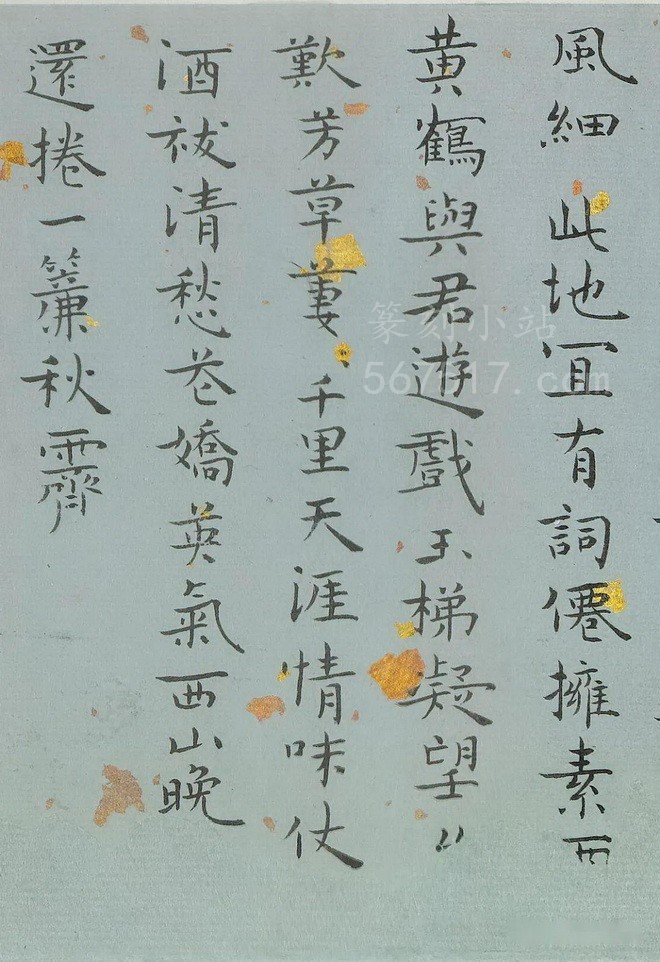 風細 此地宜有詞僊擁素
黃鶴與君遊戲玉梯凝望
歎芳草萋千里天涯情味仗
酒祓清愁花嬌英氣西山晚
還捲一簾秋霽
篆刻小站